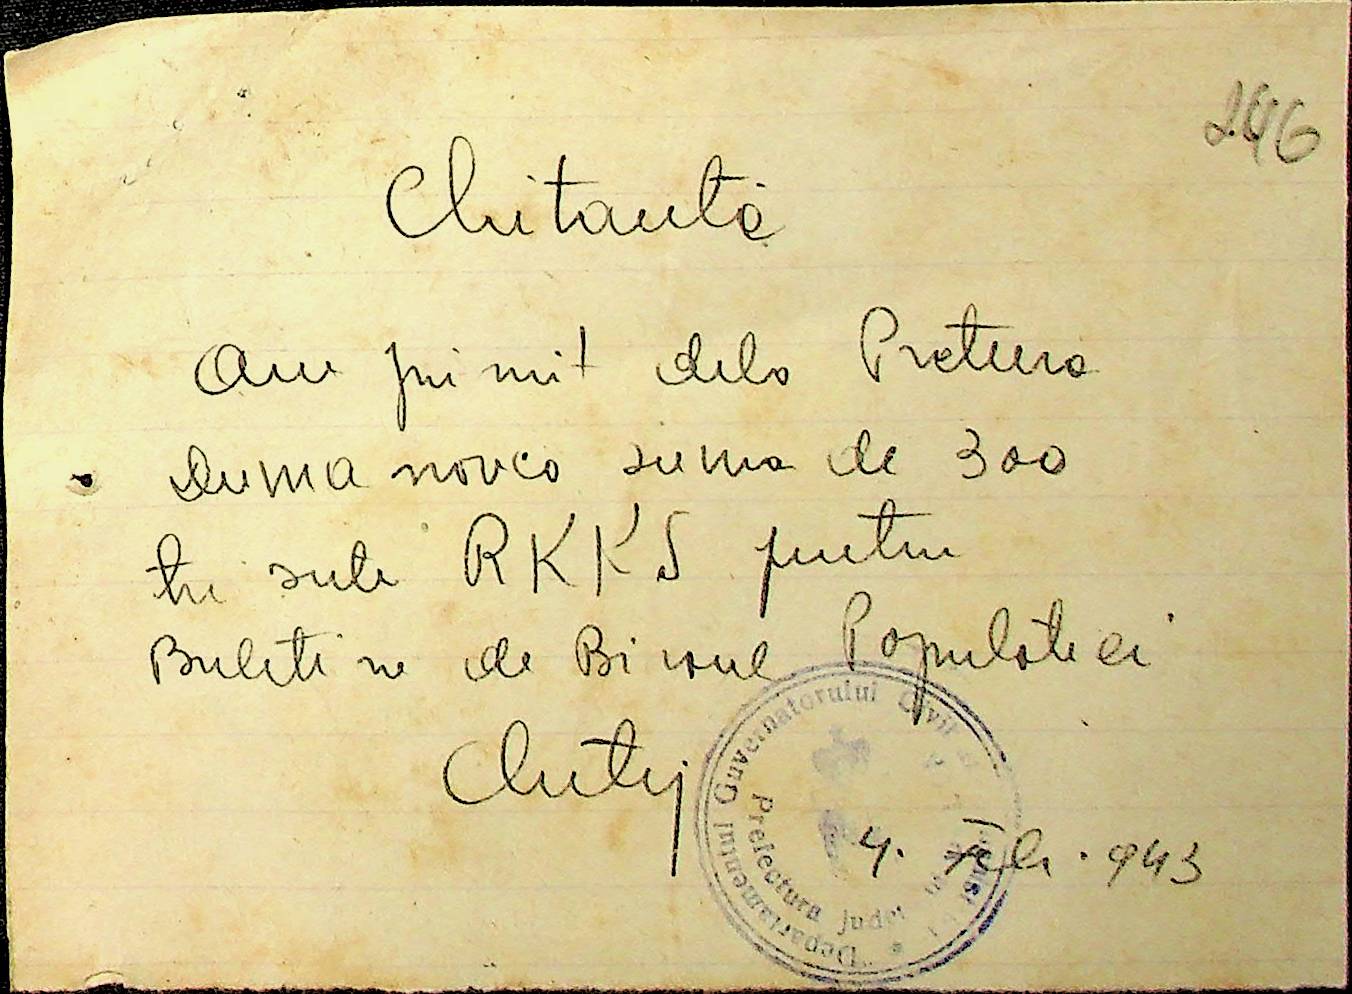 246
Chitanta
Am primit dela Pretura
Dumanovca suma de 300
tri sute RKKS pentru
Buletine de Biroul Populatiei
4. Feb. 943
Departamentul Guvernatorului Civil
Prefectura Jude